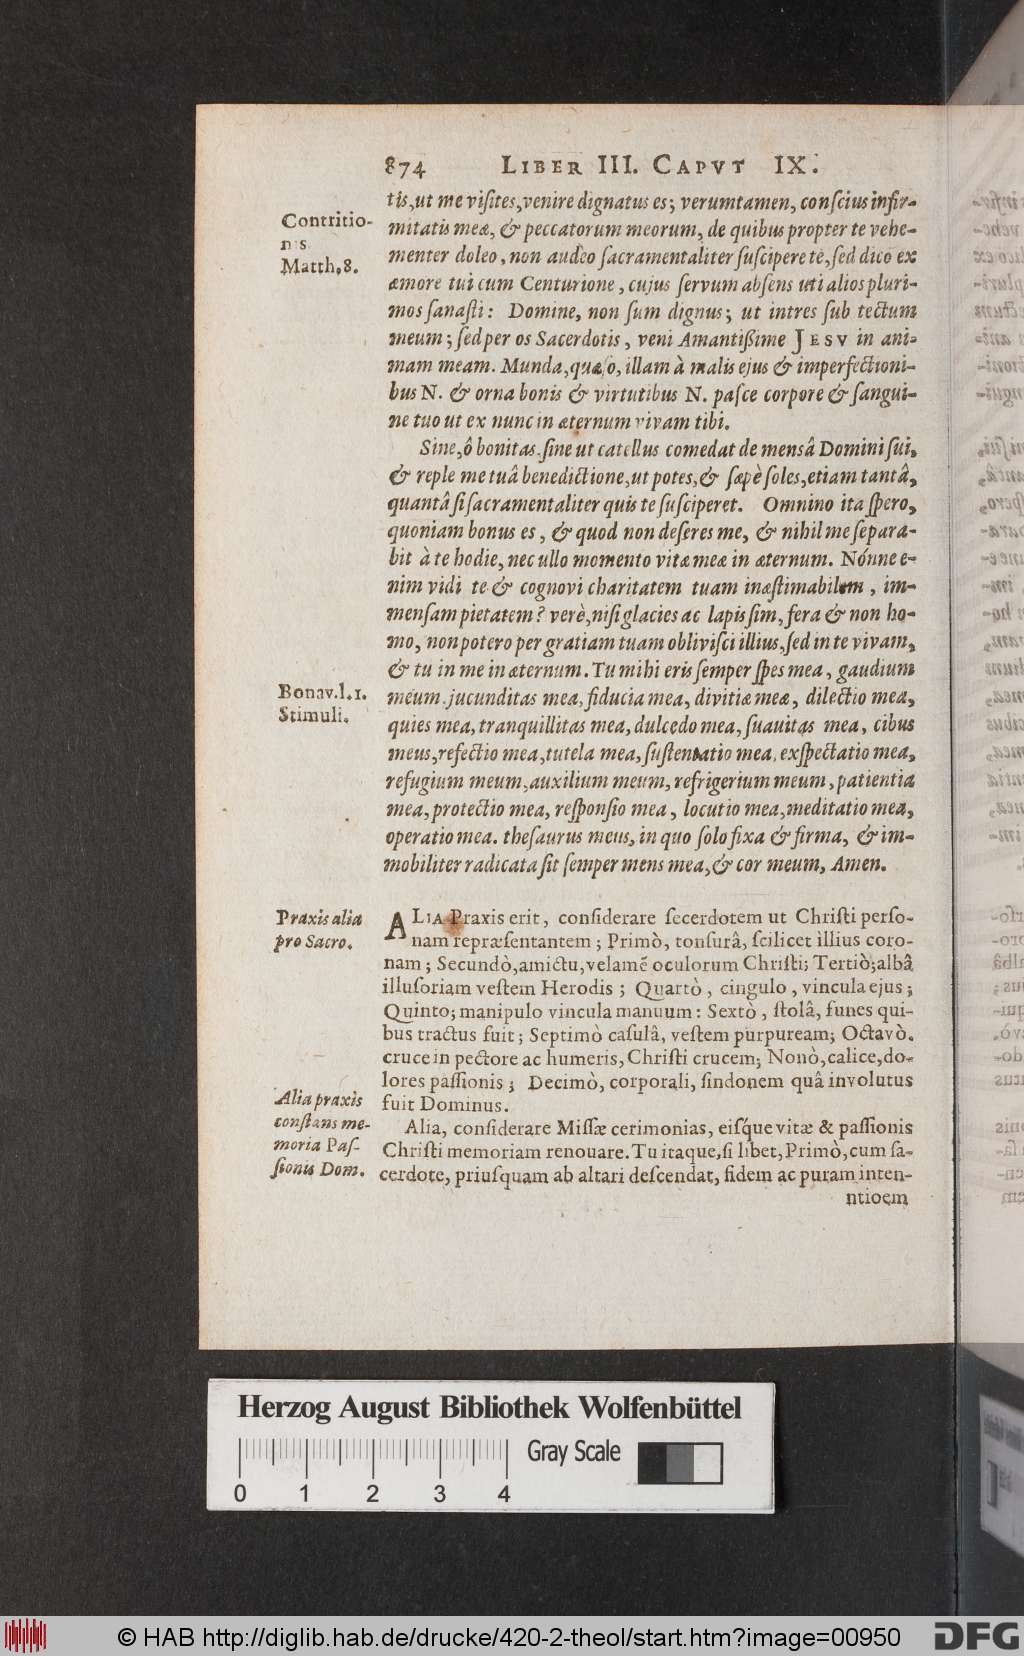 874 LIBER III. CAPVT IX.
tis, ut me viſites, venire dignatus es; verumtamen, conſcius infir-
Contritio-
nis
Matth. 8.
mitatis meæ, & peccatorum meorum, de quibus propter te vehe-
menter doleo, non audeo ſacramentaliter ſuſcipere te, ſed dico ex
amore tui cum Centurione, cujus ſervum abſens uti alios pluri-
mos ſanaſti: Domine, non ſum dignus; ut intres ſub tectum
meum; ſed per os Sacerdotis, veni Amantiſſime JESV in ani-
mam meam. Munda, quæſo, illam à malis ejus & imperfectioni-
bus N. & orna bonis & virtutibus N. paſce corpore & ſangui-
ne tuo ut ex nunc in æternum vivam tibi.
Sine, ô bonitas, ſine ut catellus comedat de mensâ Domini ſui,
& reple me tuâ benedictione, ut potes, & ſæpè ſoles, etiam tantâ,
quantâ ſi ſacramentaliter quis te ſuſciperet. Omnino ita ſpero,
quoniam bonus es, & quod non deſeres me, & nihil me ſepara-
bit à te hodie, nec ullo momento vitæ meæ in æternum. Nónne e-
nim vidi te & cognovi charitatem tuam inæſtimabilem, im-
menſam pietatem? verè, niſi glacies ac lapis ſim, fera & non ho-
mo, non potero per gratiam tuam oblivisci illius, ſed in te vivam,
& tu in me in æternum. Tu mihi eris ſemper ſpes mea, gaudium
Bonav. l. 1.
Stimuli.
meum. jucunditas mea, fiducia mea, divitiæ meæ, dilectio mea,
quies mea, tranquillitas mea, dulcedo mea, ſuavitas mea, cibus
meus, refectio mea, tutela mea, ſuſtentatio mea, exſpectatio mea,
refugium meum, auxilium meum, refrigerium meum, patientia
mea, protectio mea, reſponſio mea, locutio mea, meditatio mea,
operatio mea. theſaurus meus, in quo ſolo fixa & firma, & im-
mobiliter radicata ſit ſemper mens mea, & cor meum, Amen.
Praxis alia
pro Sacro.
ALIA Praxis erit, conſiderare ſecerdotem ut Chriſti perſo-
nam repræſentantem; Primò, tonſurâ, ſcilicet illius coro-
nam; Secundò, amictu, velamē oculorum Chriſti; Tertiò; albâ
illuſoriam veſtem Herodis; Quartò, cingulo, vincula ejus;
Quinto; manipulo vincula manuum: Sextò, ſtolâ, funes qui-
bus tractus fuit; Septimò caſulâ, veſtem purpuream; Octavò.
cruce in pectore ac humeris, Chriſti crucem; Nonò, calice, do-
lores paſſionis; Decimò, corporali, ſindonem quâ involutus
fuit Dominus.
Alia praxis
conſtans me-
moria Paſ-
ſionis Dom.
Alia, conſiderare Miſſæ cerimonias, eiſq́ue vitæ & paſſionis
Chriſti memoriam renouare. Tu itaque, ſi libet, Primò, cum ſa-
cerdote, priuſquam ab altari deſcendat, fidem ac puram inten-
ntioem
Herzog August Bibliothek Wolfenbüttel
Gray Scale
0 1 2 3 4
© HAB http://diglib.hab.de/drucke/420-2-theol/start.htm?image=00950
DFG